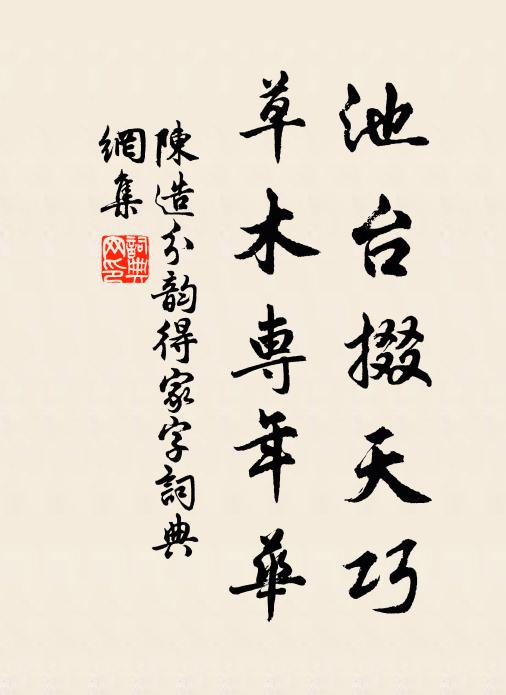 池台掇天巧
草木専年華
陳造分韵得家字詞典
網集
詞典
网印